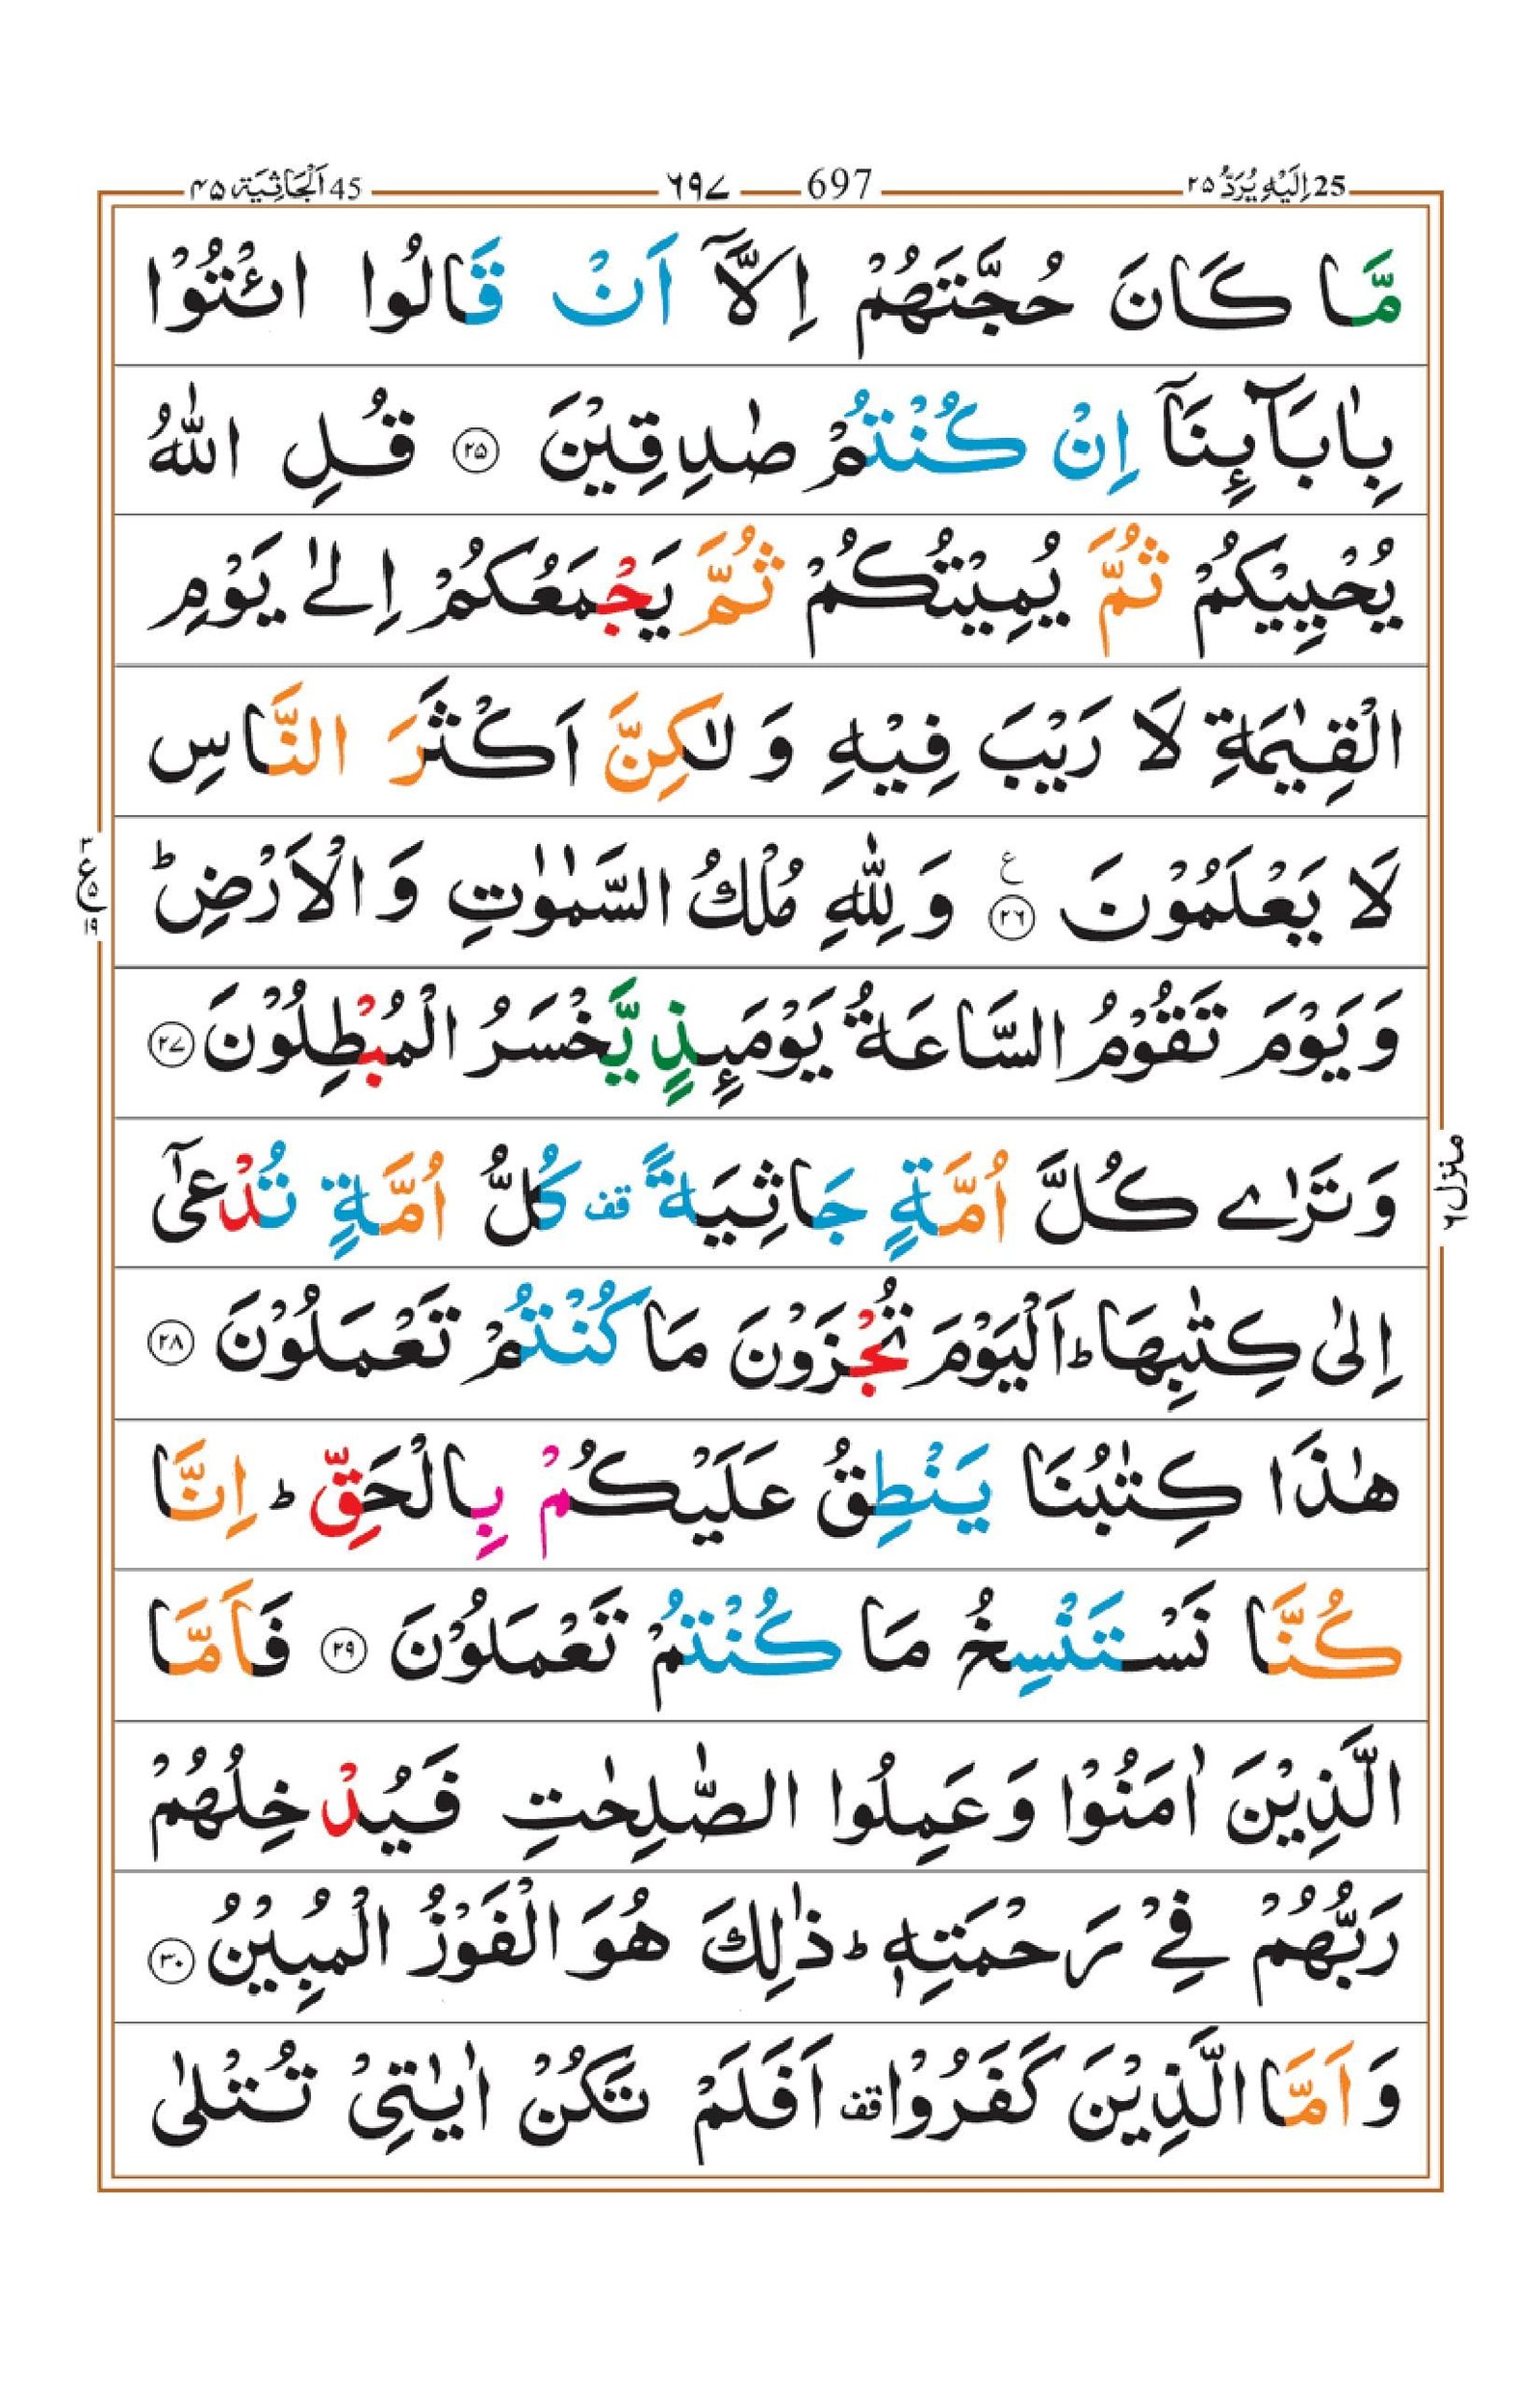 45 اَلْجَاثِيَة ۴۵ ۶۹۷ 697 اِلَيْهِ يُرَدُّ ۲۵ 25
مَّا كَانَ حُجَّتَهُمْ اِلَّاۤ اَنْ قَالُوا ائْتُوْا
بِاٰبَآىِٕنَاۤ اِنْ كُنْتُمْ صٰدِقِيْنَ ۲۵ قُلِ اللّٰهُ
يُحْيِيْكُمْ ثُمَّ يُمِيْتُكُمْ ثُمَّ يَجْمَعُكُمْ اِلٰى يَوْمِ
الْقِيٰمَةِ لَا رَيْبَ فِيْهِ وَ لٰكِنَّ اَكْثَرَ النَّاسِ
لَا يَعْلَمُوْنَ ۲۶ ع وَ لِلّٰهِ مُلْكُ السَّمٰوٰتِ وَ الْاَرْضِ ؕ
۳ ع ۵ ۱۹
وَ يَوْمَ تَقُوْمُ السَّاعَةُ يَوْمَىِٕذٍ يَّخْسَرُ الْمُبْطِلُوْنَ ۲۷
وَ تَرٰى كُلَّ اُمَّةٍ جَاثِيَةً قف كُلُّ اُمَّةٍ تُدْعٰۤى
منزل ۶
اِلٰى كِتٰبِهَا ؕ اَلْيَوْمَ تُجْزَوْنَ مَا كُنْتُمْ تَعْمَلُوْنَ ۲۸
هٰذَا كِتٰبُنَا يَنْطِقُ عَلَيْكُمْ بِالْحَقِّ ؕ اِنَّا
كُنَّا نَسْتَنْسِخُ مَا كُنْتُمْ تَعْمَلُوْنَ ۲۹ فَاَمَّا
الَّذِيْنَ اٰمَنُوْا وَ عَمِلُوا الصّٰلِحٰتِ فَيُدْخِلُهُمْ
رَبُّهُمْ فِيْ رَحْمَتِهٖ ؕ ذٰلِكَ هُوَ الْفَوْزُ الْمُبِيْنُ ۳۰
وَ اَمَّا الَّذِيْنَ كَفَرُوْا قف اَفَلَمْ تَكُنْ اٰيٰتِيْ تُتْلٰى